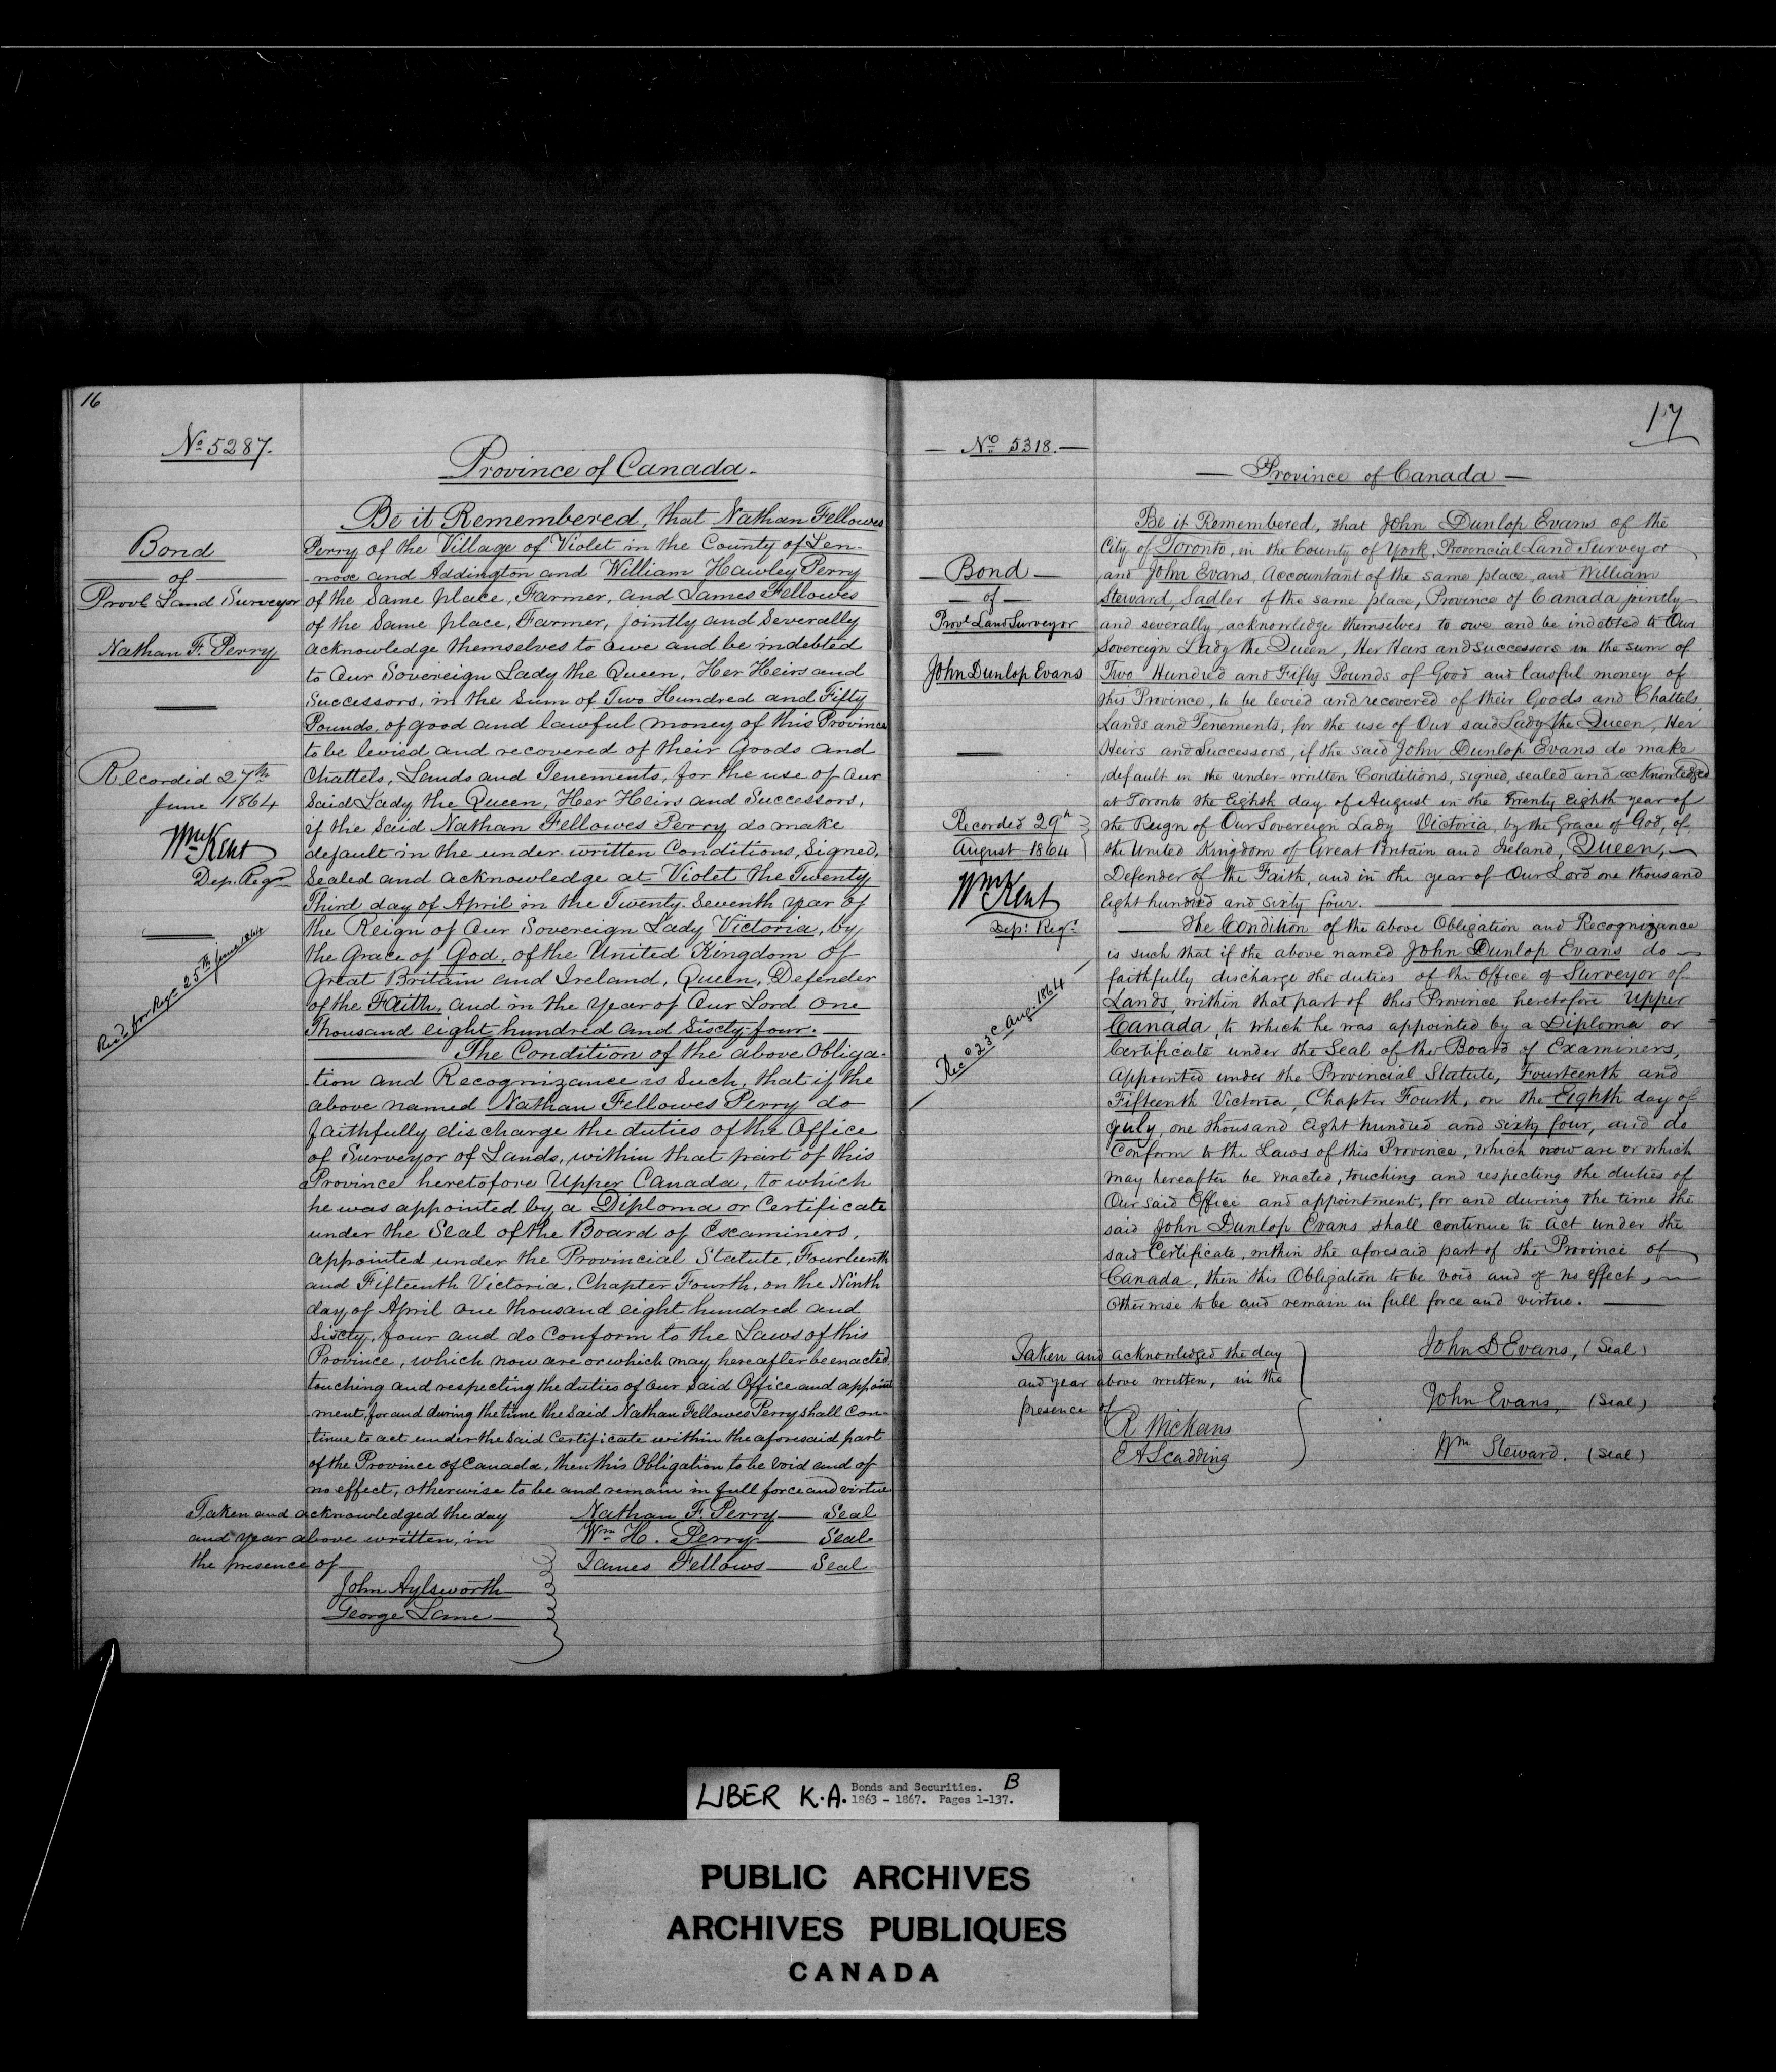 16
No 5287.
Province of Canada.
Bond
of
Provl Land Surveyor
Nathan F. Perry
Recorded 27th
June 1864
Wm Kent
Dep. Regr
Recd for Regn 25th June 1864
Be it Remembered, that Nathan Fellowes
Perry of the Village of Violet in the County of Len-
nox and Addington and William Hawley Perry
of the Same place, Farmer, and James Fellowes
of the Same place, Farmer, jointly and Severally
acknowledge themselves to owe and be indebted
to Our Sovereign Lady the Queen, Her Heirs and
Successors, in the Sum of Two Hundred and Fifty
Pounds, of good and lawful money of this Province
to be levied and recovered of their Goods and
Chattels, Lands and Tenements, for the use of Our
Said Lady the Queen, Her Heirs and Successors,
if the Said Nathan Fellowes Perry do make
default in the under-written Conditions, Signed,
Sealed and acknowledge at Violet the Twenty
Third day of April in the Twenty Seventh year of
the Reign of Our Sovereign Lady Victoria, by
the Grace of God, of the United Kingdom of
Great Britain and Ireland, Queen, Defender
of the Faith, and in the year of Our Lord One
Thousand eight hundred and Sixty-four.
The Condition of the above Obliga-
tion and Recognizance is Such, that if the
above named Nathan Fellowes Perry do
faithfully discharge the duties of the Office
of Surveyor of Lands, within that part of this
Province heretofore Upper Canada, to which
he was appointed by a Diploma or Certificate
under the Seal of the Board of Examiners,
appointed under the Provincial Statute, Fourteenth
and Fifteenth Victoria, Chapter Fourth, on the Ninth
day of April One thousand eight hundred and
Sixty, four and do Conform to the Laws of this
Province, which now are or which may hereafter be enacted,
touching and respecting the duties of Our Said Office and appoint
ment, for and during the time the Said Nathan Fellowes Perry shall Con-
tinue to act under the Said Certificate within the aforesaid part
of the Province of Canada, then this Obligation to be void and of
no effect, otherwise to be and remain in full force and virtue
Taken and acknowledged the day
and year above written, in
the presence of
John Aylsworth
George Lane
Nathan F. Perry Seal
Wm H. Perry Seal
James Fellows Seal
17
No 5318.
Province of Canada
Bond
of
Provl Land Surveyor
John Dunlop Evans
Recorded 29th
August 1864
Wm Kent
Dep: Regr
Recd 23d Aug. 1864
Be it Remembered, that John Dunlop Evans of the
City of Toronto, in the County of York, Provincial Land Surveyor
and John Evans, Accountant of the same place, and William
Steward, Sadler of the same place, Province of Canada jointly
and severally acknowledge themselves to owe and be indebted to Our
Sovereign Lady the Queen, Her Heirs and Successors in the sum of
Two Hundred and Fifty Pounds of Good and lawful money of
this Province, to be levied and recovered of their Goods and Chattels,
Lands and Tenements, for the use of Our said Lady the Queen, Her
Heirs and Successors, if the said John Dunlop Evans do make
default in the under-written Conditions, signed, sealed and acknowledged
at Toronto the Eighth day of August in the Twenty Eighth year of
the Reign of Our Sovereign Lady Victoria, by the Grace of God, of
the United Kingdom of Great Britain and Ireland, Queen,
Defender of the Faith, and in the year of Our Lord one thousand
Eight hundred and sixty four.
The Condition of the above Obligation and Recognizance
is such that if the above named John Dunlop Evans do
faithfully discharge the duties of the Office of Surveyor of
Lands, within that part of this Province heretofore Upper
Canada, to which he was appointed by a Diploma or
Certificate under the Seal of the Board of Examiners,
Appointed under the Provincial Statute, Fourteenth and
Fifteenth Victoria, Chapter Fourth, on the Eighth day of
July, one thousand Eight hundred and sixty four, and do
Conform to the Laws of this Province, which now are or which
may hereafter be enacted, touching and respecting the duties of
Our said Office and appointment, for and during the time the
said John Dunlop Evans shall continue to act under the
said Certificate, within the aforesaid part of the Province of
Canada, then this Obligation to be void and of no effect,
Otherwise to be and remain in full force and virtue.
Taken and acknowledged the day
and year above written, in the
presence of
E A Scadding
John D Evans, (Seal)
John Evans, (Seal)
Wm Steward. (Seal)
LIBER K.A. Bonds and Securities. B
1863 - 1867. Pages 1-137.
PUBLIC ARCHIVES
ARCHIVES PUBLIQUES
CANADA